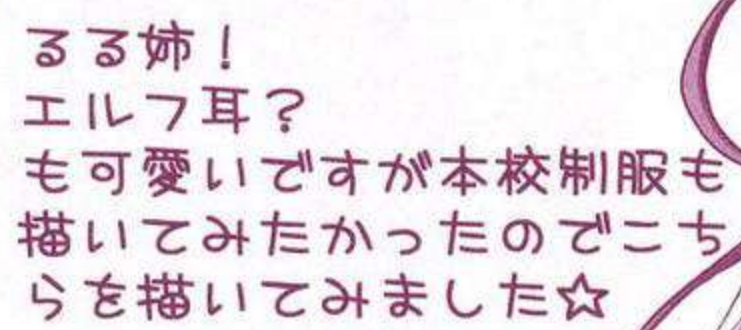 るる姉！
エルフ耳？
も可愛いですが本校制服も
描いてみたかったのでこち
らを描いてみました☆